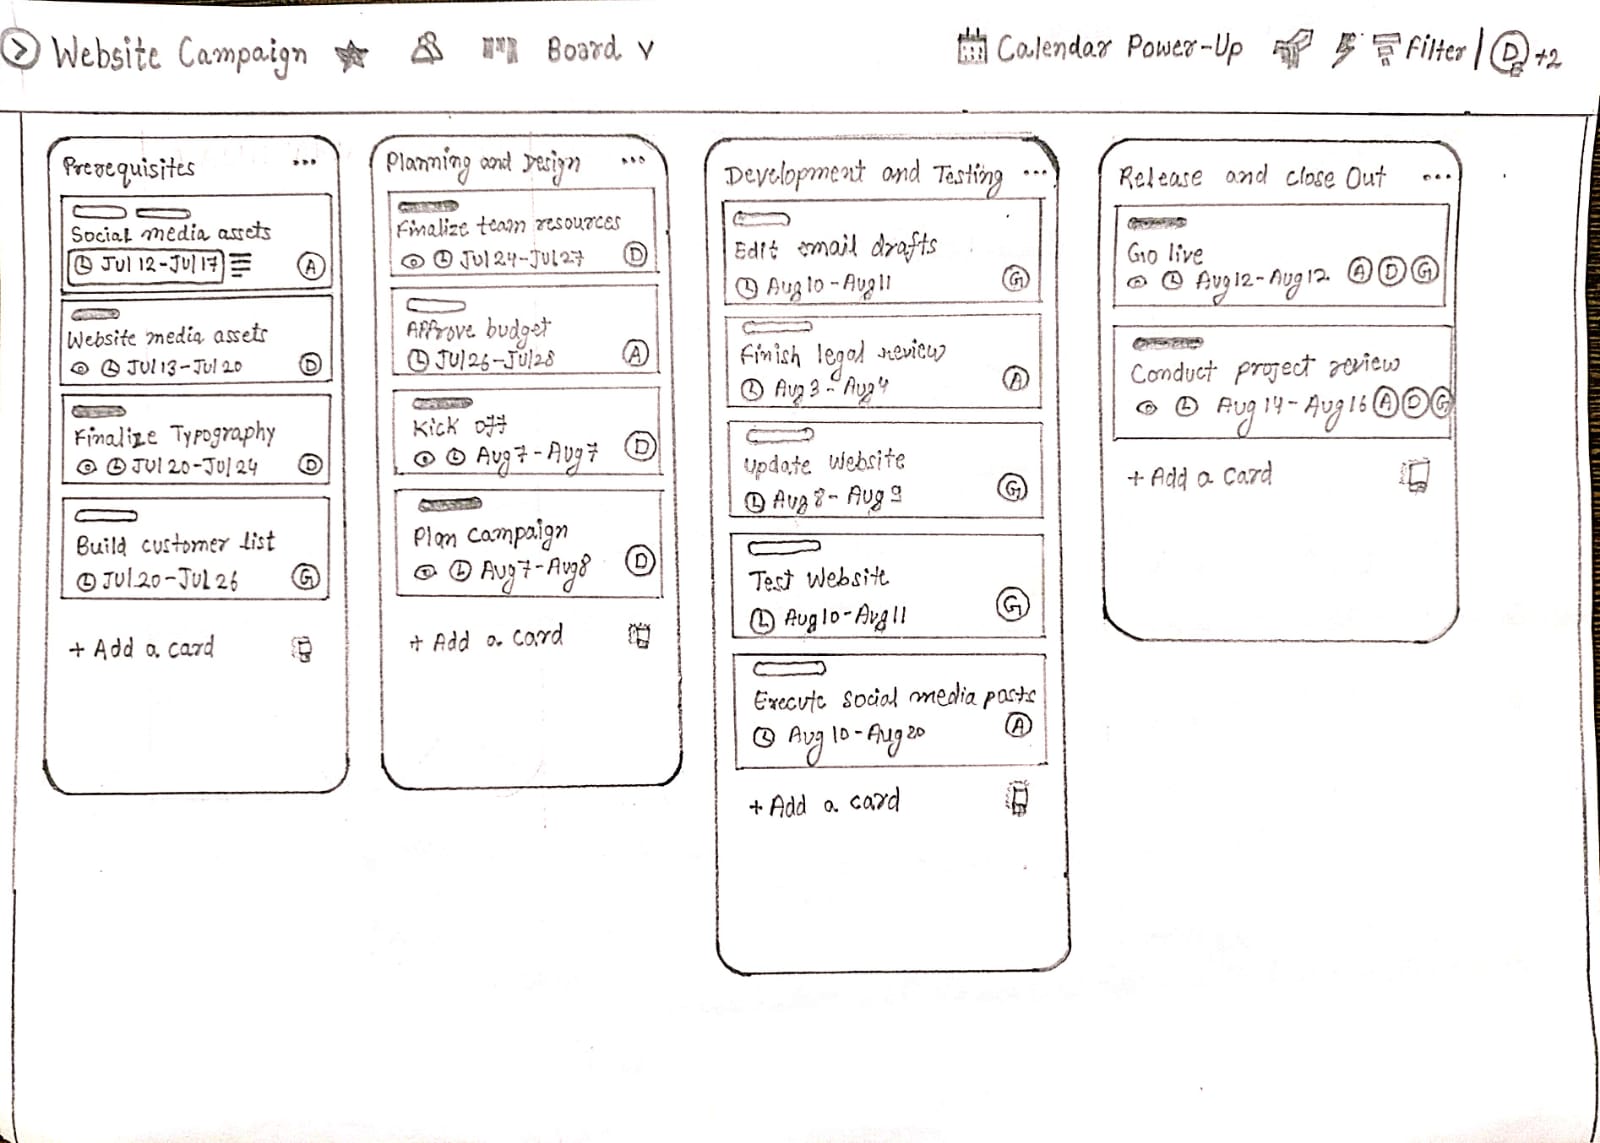 Website Campaign Board
Calendar Power-Up Filter D +2
Prerequisites ...
Social media assets
Jul 12-Jul 17 A
Website media assets
Jul 13-Jul 20 D
Finalize Typography
Jul 20-Jul 24 D
Build customer list
Jul 20-Jul 26 G
+ Add a card
Planning and Design ...
Finalize team resources
Jul 24-Jul 27 D
Approve budget
Jul 26-Jul 28 A
Kick off
Aug 7-Aug 7 D
Plan Campaign
Aug 7-Aug 8 D
+ Add a card
Development and Testing ...
Edit email drafts
Aug 10-Aug 11 G
Finish legal review
Aug 3-Aug 4 A
Update Website
Aug 8-Aug 9 G
Test Website
Aug 10-Aug 11 G
Execute social media posts
Aug 10-Aug 20 A
+ Add a card
Release and Close Out ...
Go live
Aug 12-Aug 12 A D G
Conduct project review
Aug 14-Aug 16 A D G
+ Add a card